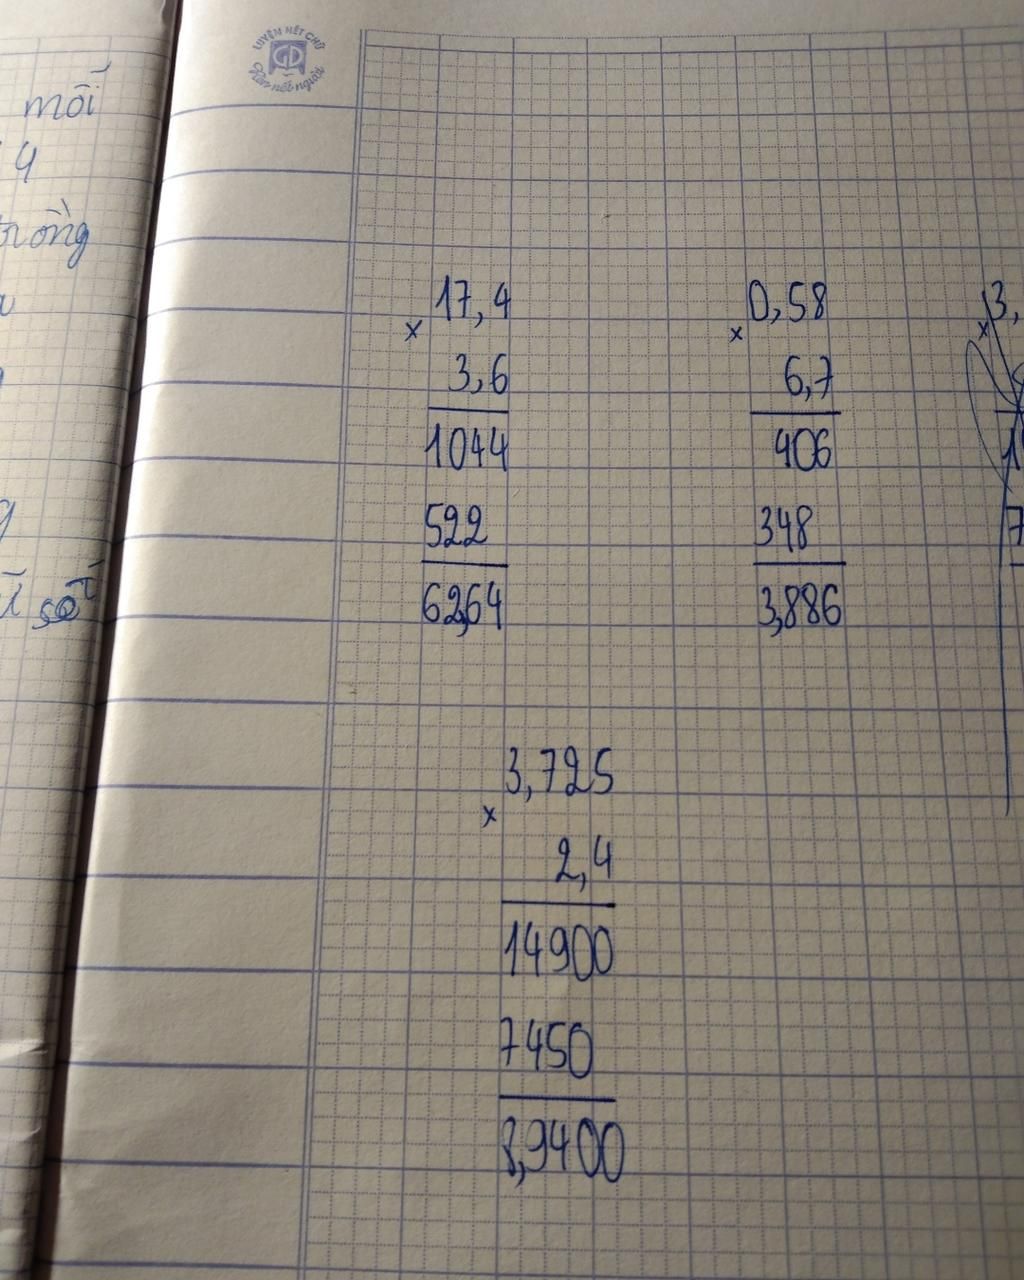 LUYỆN NÉT CHỮ
GD
Rèn nết người
mỗi
4
trồng
số
17,4
x
3,6
1044
522
62,64
0,58
x
6,7
406
348
3,886
3,
x
1
7
3,725
x
2,4
14900
7450
8,9400